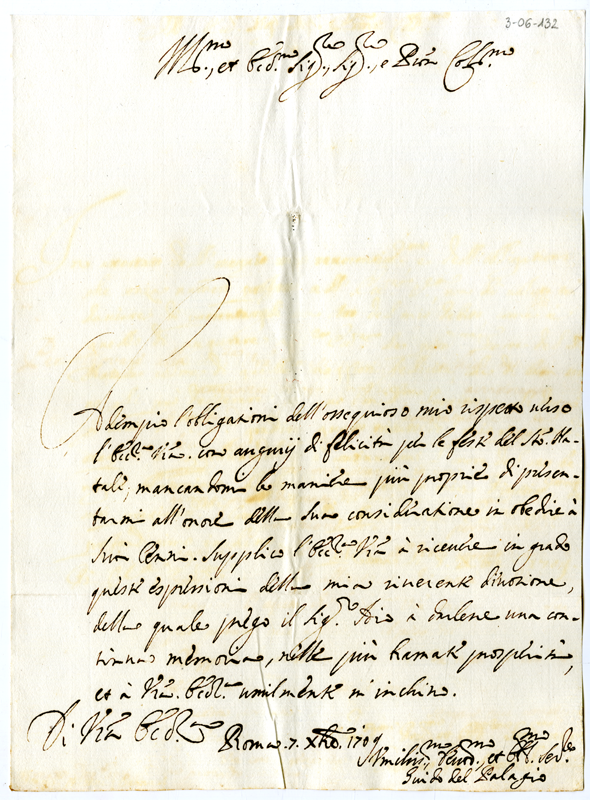 3-06-132
Ill.mo, et Ecc.mo Sig.re, Sig.re, e Pron Coll.mo
Adempio l'obligationi dell'ossequioso mio rispetto verso
l'Ecc.a Vra. con augurij di felicità per le feste del Sto. Na-
tale, mancandomi le maniere più proprie di presen-
tarmi all'onore della sua consideratione in obedire à
suoi Cenni. Supplico l'Ecc.a Vra à ricevere in grado
queste espressioni della mia riverente divozione,
della quale prego il Sig.re Idio à darlene una con-
tinua memoria, nelle più bramate prosperità,
et à Vra. Ecc.a umilmente m'inchino.
Di Vra Ecc.a
Roma. 7. Xbre. 1709
Umiliss.mo Devo.mo et Obb. Ser.re
Guido del Palagio